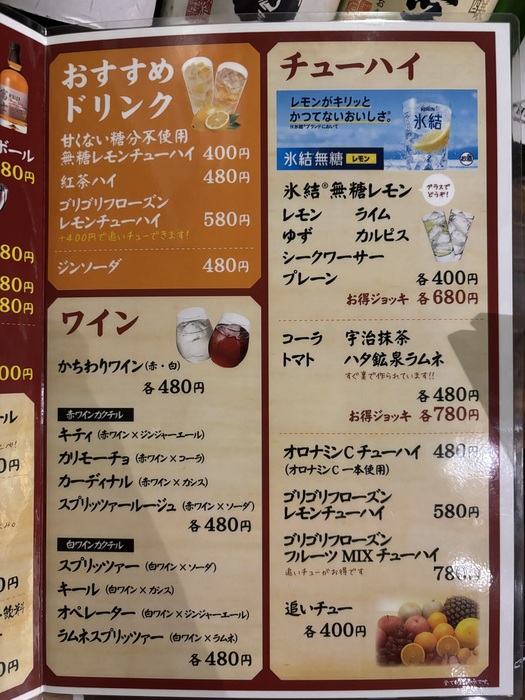 ボール
80円
80円
80円
80円
00円
ール
0円
0円
0円
飲料
0円
おすすめ
ドリンク
甘くない糖分不使用
無糖レモンチューハイ 400円
紅茶ハイ 480円
ゴリゴリフローズン
レモンチューハイ 580円
+400円で追いチューできます!
ジンソーダ 480円
ワイン
かちわりワイン(赤・白)
各480円
赤ワインカクテル
キティ(赤ワイン×ジンジャーエール)
カリモーチョ(赤ワイン×コーラ)
カーディナル(赤ワイン×カシス)
スプリッツァールージュ(赤ワイン×ソーダ)
各480円
白ワインカクテル
スプリッツァー(白ワイン×ソーダ)
キール(白ワイン×カシス)
オペレーター(白ワイン×ジンジャーエール)
ラムネスプリッツァー(白ワイン×ラムネ)
各480円
チューハイ
レモンがキリッと
かつてないおいしさ。
※氷結®ブランドにおいて
KIRIN
氷結
氷結無糖 レモン
お酒
氷結®無糖レモン
グラスで
どうぞ!
レモン ライム
ゆず カルピス
シークワーサー
プレーン 各400円
お得ジョッキ 各680円
コーラ 宇治抹茶
トマト ハタ鉱泉ラムネ
すぐ裏で作られています!!
各480円
お得ジョッキ 各780円
オロナミンCチューハイ 480円
(オロナミンC一本使用)
ゴリゴリフローズン
レモンチューハイ 580円
ゴリゴリフローズン
フルーツMIXチューハイ
追いチューがお得です 780円
追いチュー
各400円